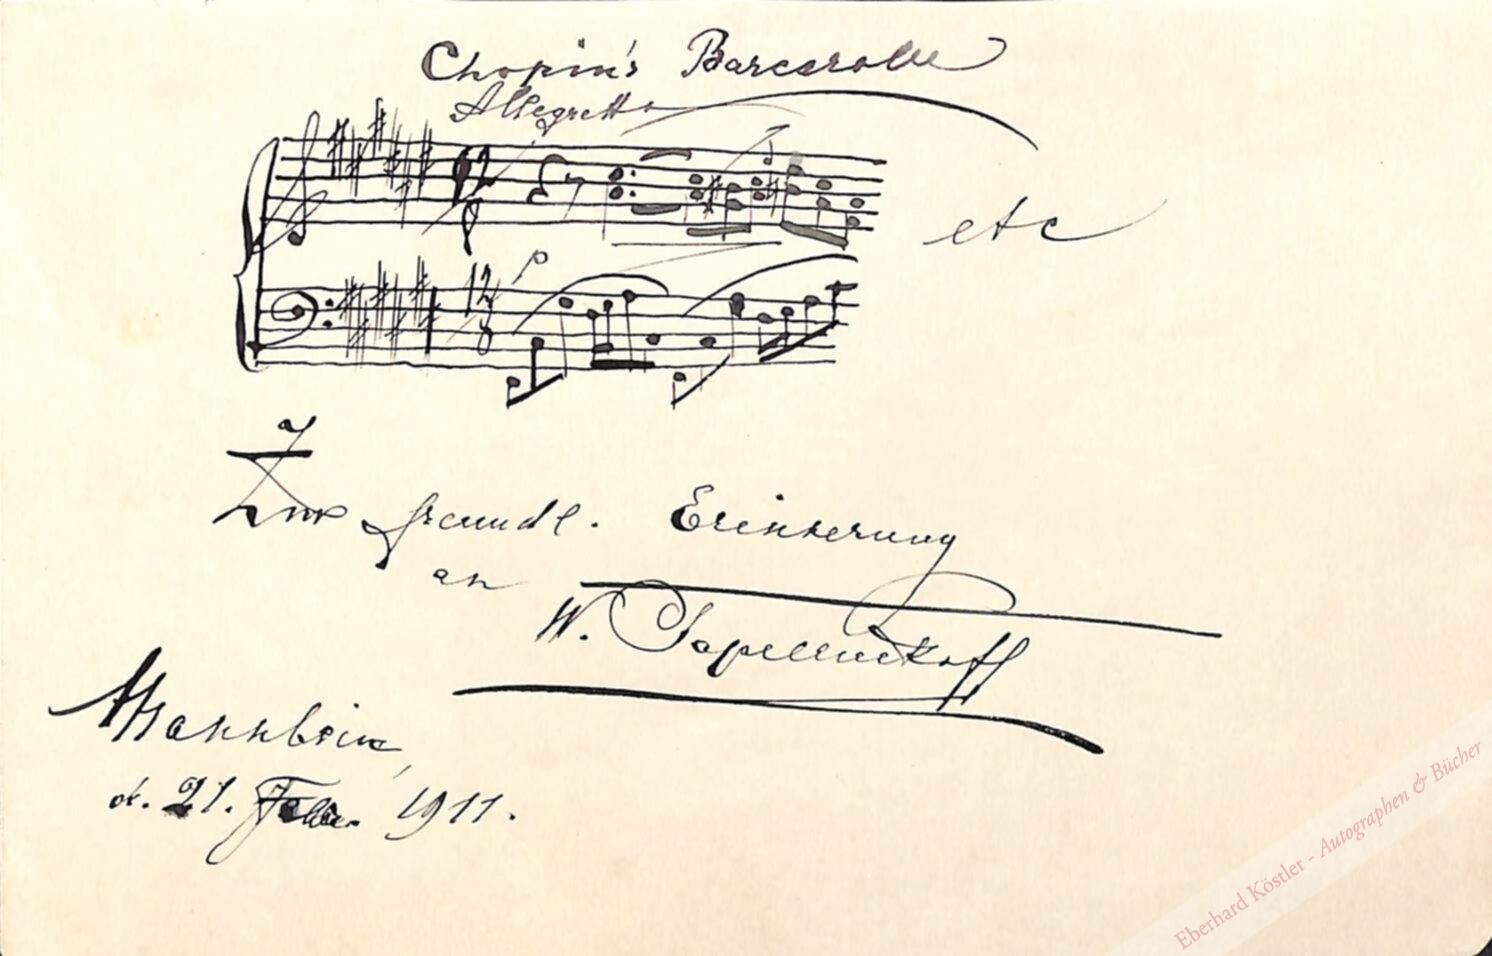 Chopin's Barcarolle
Allegretto
12
8
p
etc
12
8
Zur freundl. Erinnerung
an
W. Sapellnikoff
Mannheim,
d. 21. Febr. 1911.
Eberhard Köstler - Autographen & Bücher